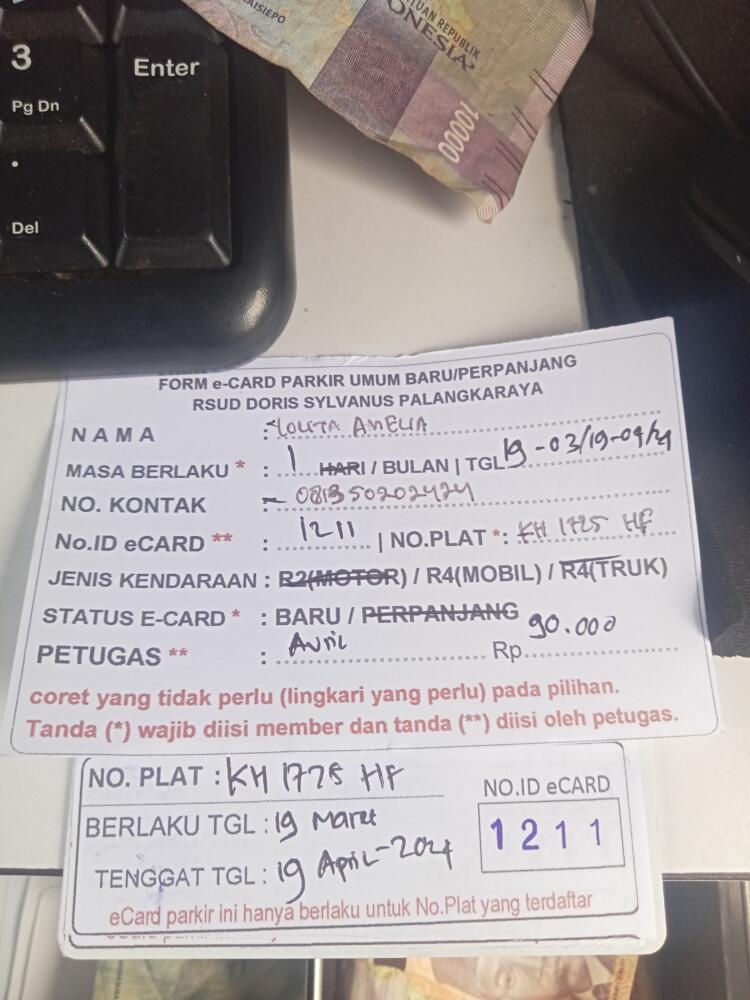 3
Enter
Pg Dn
.
Del
REPUBLIK
10000
FORM e-CARD PARKIR UMUM BARU/PERPANJANG
RSUD DORIS SYLVANUS PALANGKARAYA
NAMA : LOLITA AMELIA
MASA BERLAKU * : 1 HARI / BULAN | TGL 19-03/19-04/24
NO. KONTAK : 081350202424
No.ID eCARD ** : 1211 | NO.PLAT *: KH 1725 HF
JENIS KENDARAAN : R2(MOTOR) / R4(MOBIL) / R4(TRUK)
STATUS E-CARD * : BARU / PERPANJANG
PETUGAS ** : Avril Rp 90.000
coret yang tidak perlu (lingkari yang perlu) pada pilihan.
Tanda (*) wajib diisi member dan tanda (**) diisi oleh petugas.
NO. PLAT : KH 1725 HF
NO.ID eCARD
BERLAKU TGL : 19 Maret
1211
TENGGAT TGL : 19 April-2024
eCard parkir ini hanya berlaku untuk No.Plat yang terdaftar